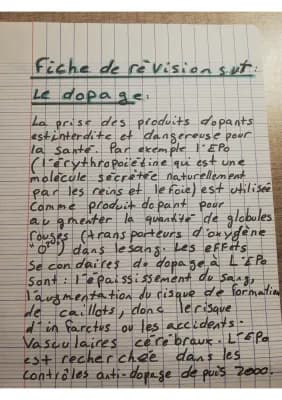 Fiche de révision svt :
Le dopage.
La prise des produits dopants
est interdite et dangereuse pour
la santé. Par exemple l'EPO
(l'érythropoïétine qui est une
molécule sécrétée naturellement
par les reins et le foie) est utilisée
comme produit dopant pour
augmenter la quantité de globules
rouges (transporteurs d'oxygène
) dans le sang. Les effets
secondaires de dopage à L'EPO
sont : l'épaississement du sang,
l'augmentation du risque de formation
de caillots, donc le risque
d'infarctus ou les accidents.
Vasculaires cérébraux. L'EPO
est recherchée dans les
contrôles anti-dopage depuis 2000.